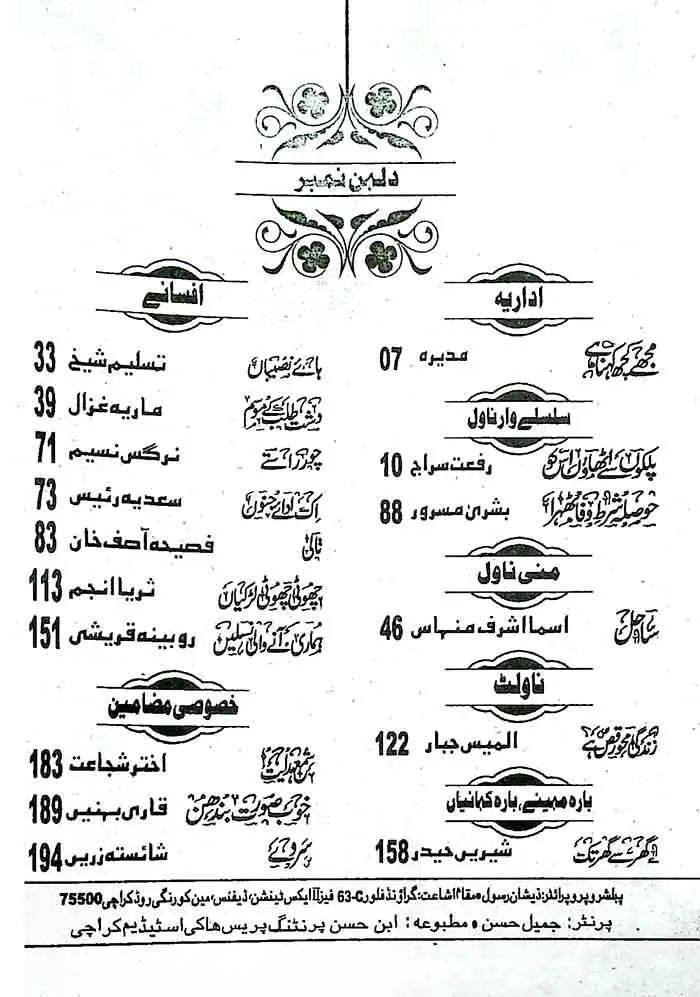 دلہن نمبر
اداریہ
مجھے کچھ کہنا ہے مدیرہ 07
سلسلے وار ناول
پلکوں سے اٹھاؤں اس کو رفعت سراج 10
حوصلہ شرط وفا ٹھہرا بشریٰ مسرور 88
منی ناول
ساحل اسما اشرف منہاس 46
ناولٹ
زندگی محور قص ہے المیس جبار 122
بارہ مہینے، بارہ کہانیاں
گھر سے گھر تک شیریں حیدر 158
افسانے
ہائے نصیباں تسلیم شیخ 33
دشت طلب کے موسم ماریہ غزال 39
چور راستے نرگس نسیم 71
اک ادائے جنوں سعدیہ رئیس 73
تالی فصیحہ آصف خان 83
چھوٹی چھوٹی لڑکیاں ثریا انجم 113
ہماری آنے والی نسلیں روبینہ قریشی 151
خصوصی مضامین
شمع ہدایت اختر شجاعت 183
خوب صورت بندھن قاری بہنیں 189
سروے شائستہ زریں 194
پبلشر و پروپرائٹر: ذیشان رسول، مقام اشاعت: گراؤنڈ فلور C-63 فیز II ایکس ٹینشن، ڈیفنس، مین کورنگی روڈ کراچی 75500
پرنٹر: جمیل حسن • مطبوعہ: ابن حسن پرنٹنگ پریس ہاکی اسٹیڈیم کراچی